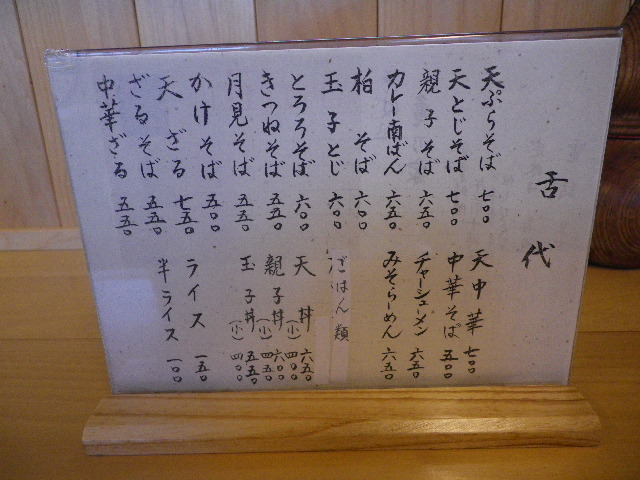 舌代
天ぷらそば 七〇〇
天とじそば 七〇〇
親子そば 六五〇
カレー南ばん 六五〇
柏そば 六〇〇
玉子とじ 六〇〇
とろろそば 六〇〇
きつねそば 五五〇
月見そば 五五〇
かけそば 五〇〇
天ざる 七五〇
ざるそば 五五〇
中華ざる 五五〇
天中華 七〇〇
中華そば 五〇〇
チャーシューメン 六五〇
みそらーめん 六五〇
ごはん類
天丼 六五〇
(小) 四〇〇
親子丼 六〇〇
(小) 四五〇
玉子丼 五五〇
(小) 四〇〇
ライス 一五〇
半ライス 一〇〇